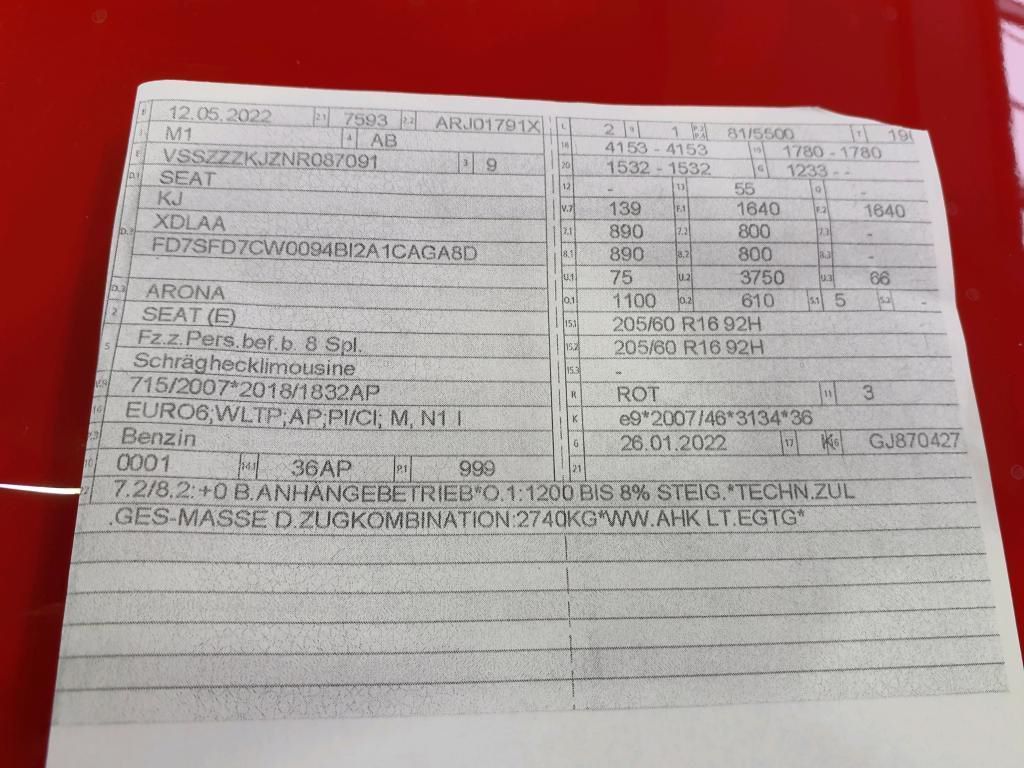 B 12.05.2022 2.1 7593 2.2 ARJ01791X
J M1 4 AB
E VSSZZZKJZNR087091 3 9
D.1 SEAT
KJ
D.2 XDLAA
FD7SFD7CW0094BI2A1CAGA8D
D.3 ARONA
2 SEAT (E)
5 Fz.z.Pers.bef.b. 8 Spl.
Schräghecklimousine
V.9 715/2007*2018/1832AP
14 EURO6;WLTP;AP;PI/CI; M, N1 I
P.3 Benzin
10 0001 14.1 36AP P.1 999
L 2 9 1 P.2 P.4 81/5500 T
18 4153 - 4153 19 1780 - 1780
20 1532 - 1532 G 1233 - -
12 - 13 55 Q -
V.7 139 F.1 1640 F.2 1640
7.1 890 7.2 800 7.3 -
8.1 890 8.2 800 8.3 -
U.1 75 U.2 3750 U.3 66
O.1 1100 O.2 610 S.1 5 S.2 -
15.1 205/60 R16 92H
15.2 205/60 R16 92H
15.3 -
R ROT 11 3
K e9*2007/46*3134*36
6 26.01.2022 17 K 16 GJ870427
21
22 7.2/8.2:+0 B.ANHÄNGEBETRIEB*O.1:1200 BIS 8% STEIG.*TECHN.ZUL
.GES-MASSE D.ZUGKOMBINATION:2740KG*WW.AHK LT.EGTG*